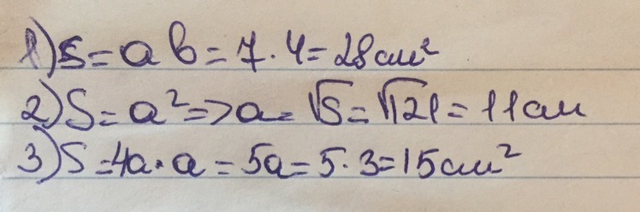 1) S = a b = 7 · 4 = 28 см²
2) S = a² => a = √S = √121 = 11 см
3) S = 4a · a = 5a = 5 · 3 = 15 см²